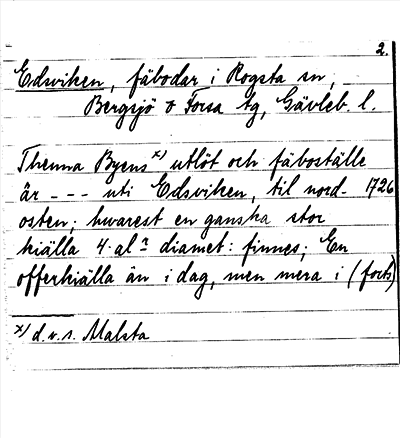 2.
Edsviken, fäbodar i Rogsta sn,
Bergsjö o Forsa tg, Gävleb. l.
Thenna Byens x) utlöt och fäboställe
är - - - uti Edsviken, til nord- 1726
osten; hwarest en ganska stor
kiälla 4 al:r diamet: finnes; En
offerkiälla än i dag, men mera i (forts)
x) d.v.s. Malsta